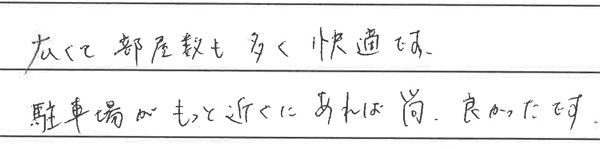 広くて部屋数も多く快適です。
駐車場がもっと近くにあれば尚、良かったです。